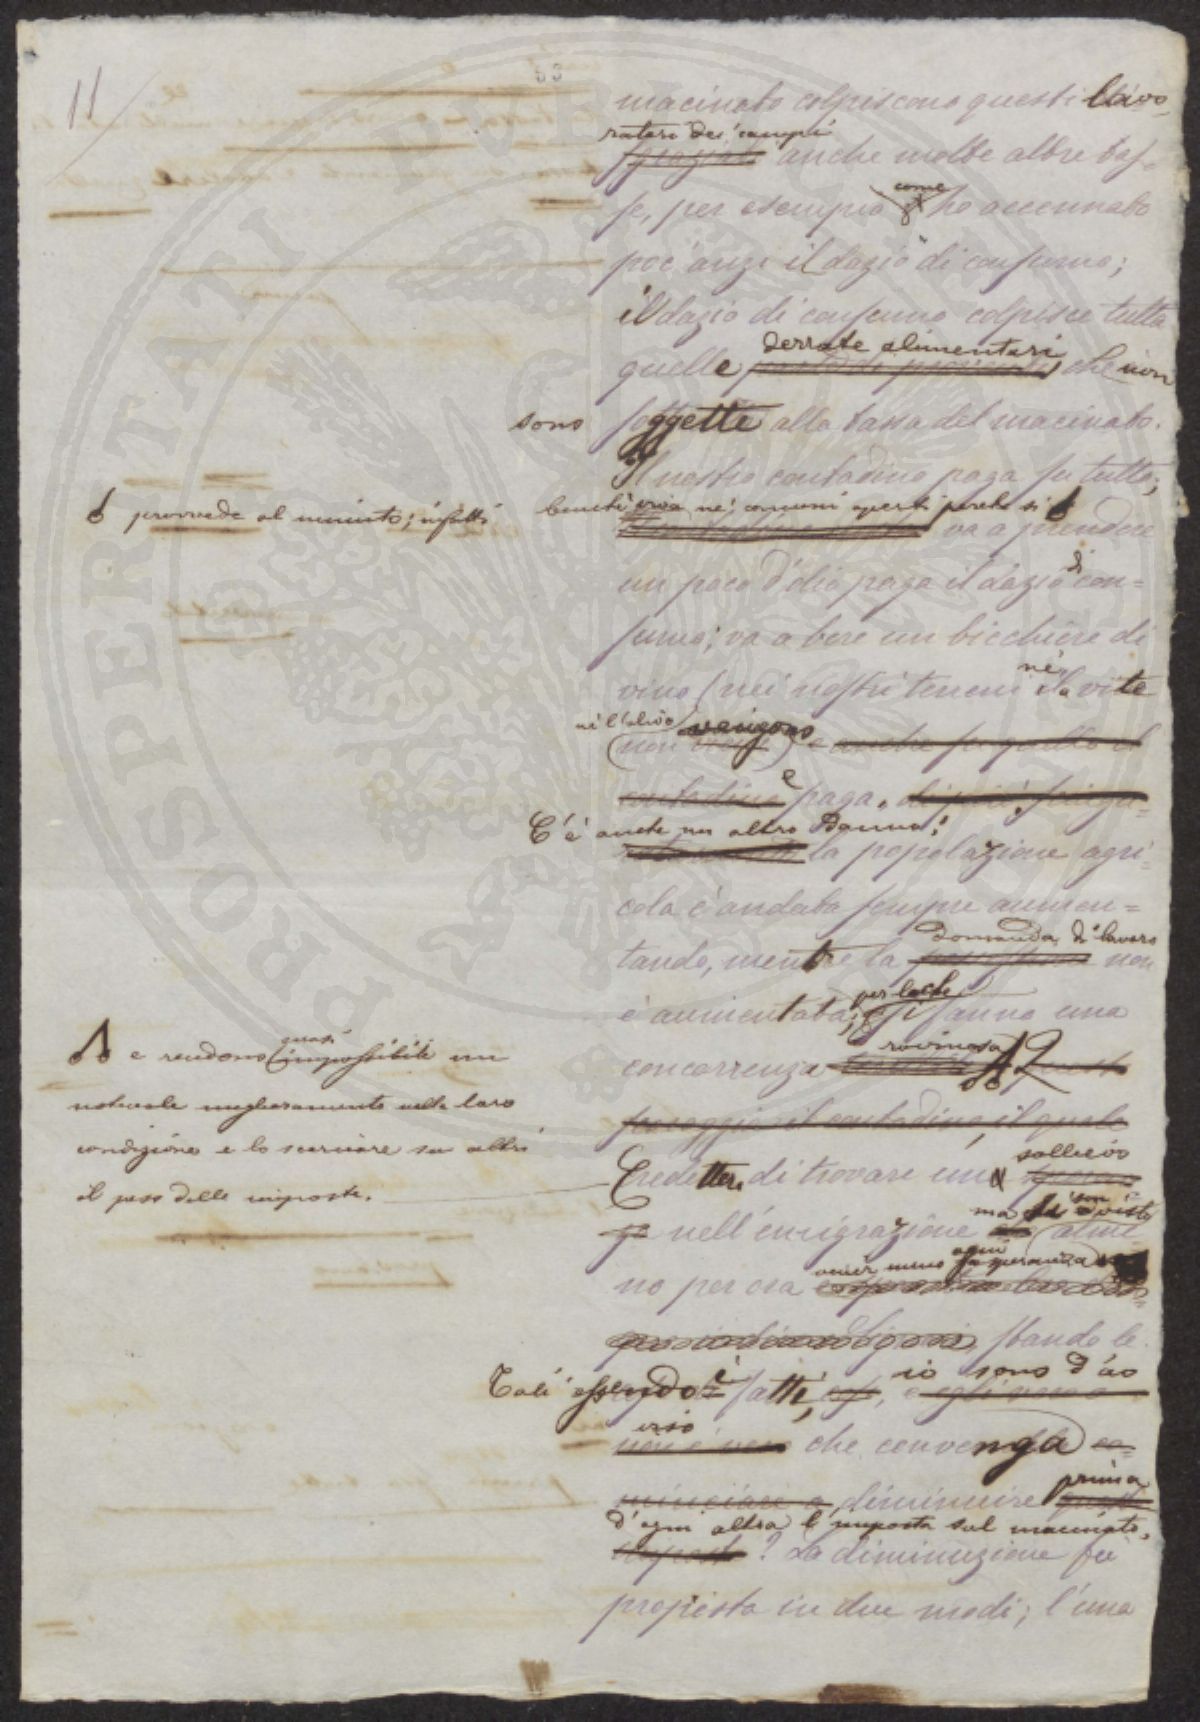 11
53
macinato colpiscono questi lavo-
ratori dei campi
anche molte altre tas-
come
se, per esempio ho accennato
poc'anzi il dazio di consumo;
il dazio di consumo colpisce tutte
derrate alimentari
quelle che non
sono soggette alla tassa del macinato.
Il nostro contadino paga su tutto;
benchè viva ne' comuni aperti perchè si
provvede al minuto; infatti
va a prendere
un poco d'olio paga il dazio di con=
sumo; va a bere un bicchiere di
vino (nei nostri terreni nè la vite
nè l'olivo vengono
non) e anche su quello il
contadino e paga.
C'è anche un altro danno;
la popolazione agri-
cola è andata sempre aumen=
domanda di lavoro
tando, mentre la non
per lo che
è aumentata; si fanno una
rovinosa
concorrenza
e rendono quasi impossibile un
notevole miglioramento nella loro
condizione e lo scaricare su altri
il peso delle imposte.
il contadino, il quale
sollievo
Credettero di trovare un
nell'emigrazione ma
alme
no per ora
stando le
Tali essendo i fatti, io sono d'av
viso
che convenga co-
minciare a diminuire prima
d'ogni altra l'imposta sul macinato.
? La diminuzione fu
proposta in due modi; l'una
PROSPERITATI PUBLICAE